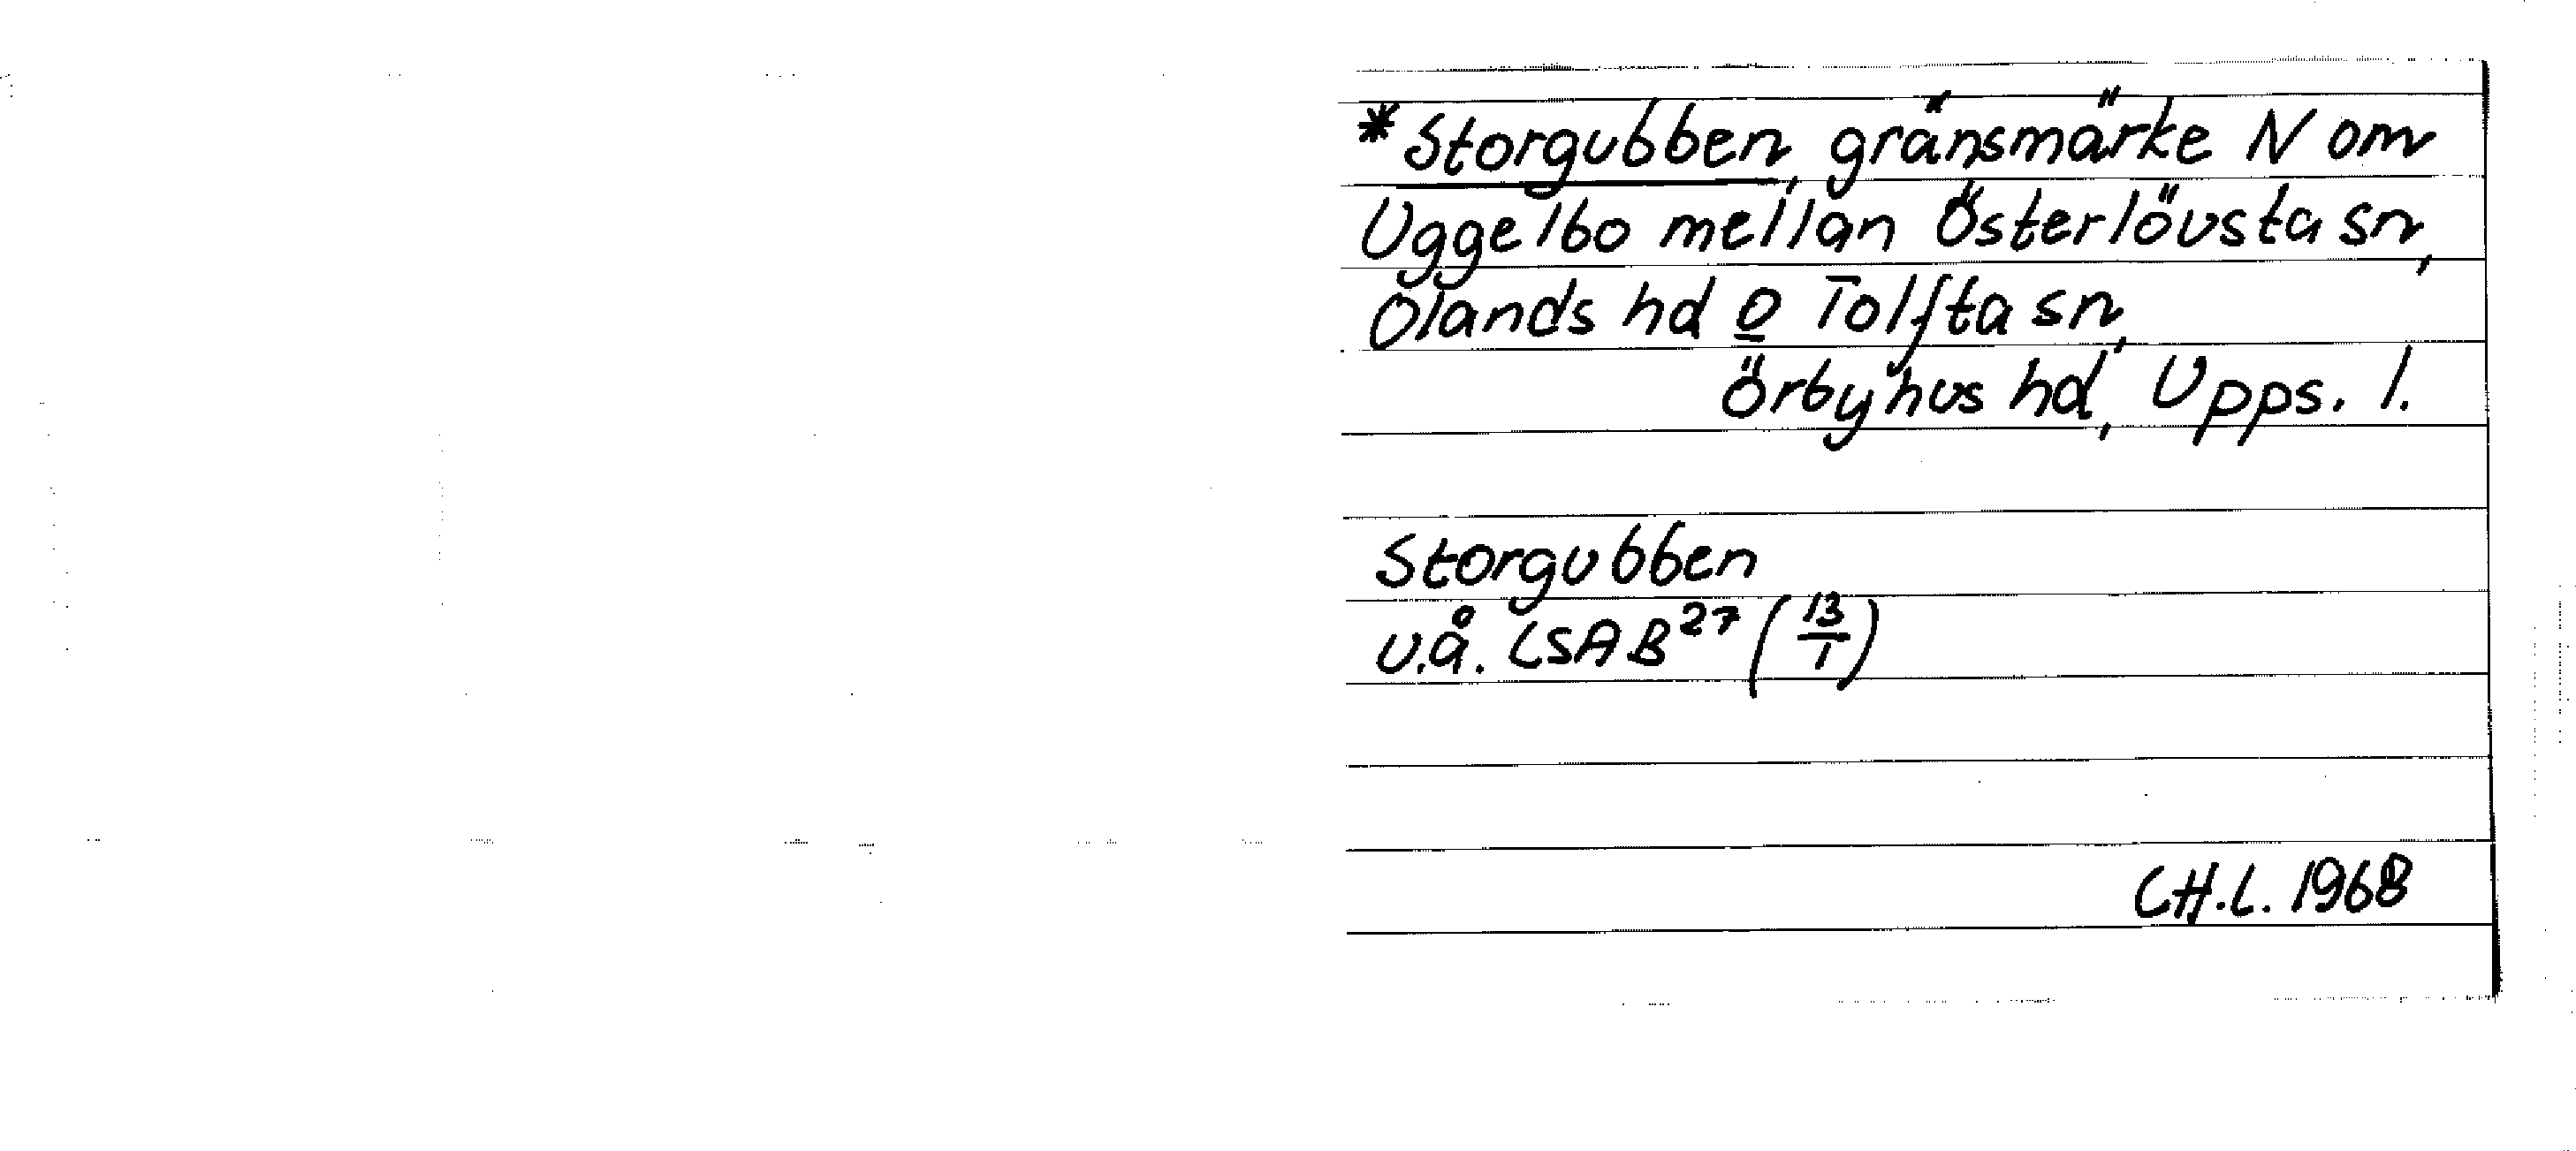 *Storgubben, gränsmärke N om
Uggelbo mellan Österlövsta sn,
Olands hd o Tolfta sn,
Örbyhus hd, Upps. l.
Storgubben
u.å. LSA B27 (13/1)
CH.L. 1968